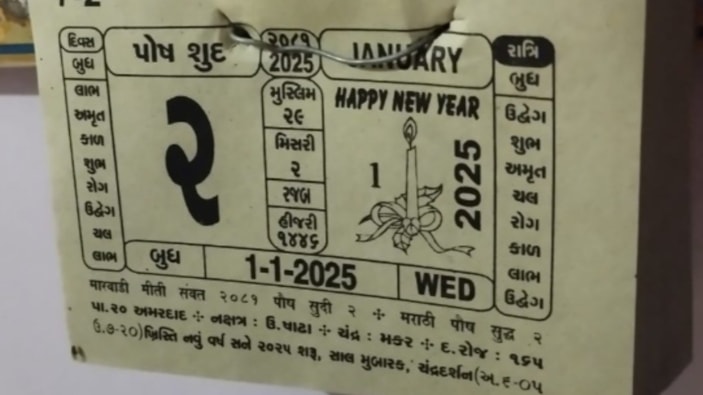 દિવસ પોષ સુદ ૨૦૮૧ JANUARY રાત્રિ
બુધ 2025 બુધ
લાભ
અમૃત
કાળ
શુભ
રોગ
ઉદ્વેગ
ચલ
લાભ
૨
મુસ્લિમ
૨૯
મિસરી
૨
રજબ
હીજરી
૧૪૪૬
HAPPY NEW YEAR
1
2025
ઉદ્વેગ
શુભ
અમૃત
ચલ
રોગ
કાળ
લાભ
ઉદ્વેગ
બુધ 1-1-2025 WED
મારવાડી મીતી સંવત ૨૦૮૧ પોષ સુદી ૨ ÷ મરાઠી પૌષ સુદ્ધ ૨
પા.૨૦ અમરદાદ ÷ નક્ષત્ર : ઉ.ષાઢા ÷ ચંદ્ર : મકર ÷ દ.રોજ : ૧૬૫
ઉ.૭-૨૦) ખ્રિસ્તિ નવું વર્ષ સને ૨૦૨૫ શરૂ, સાલ મુબારક, ચંદ્રદર્શન(અ.૬-૦૫